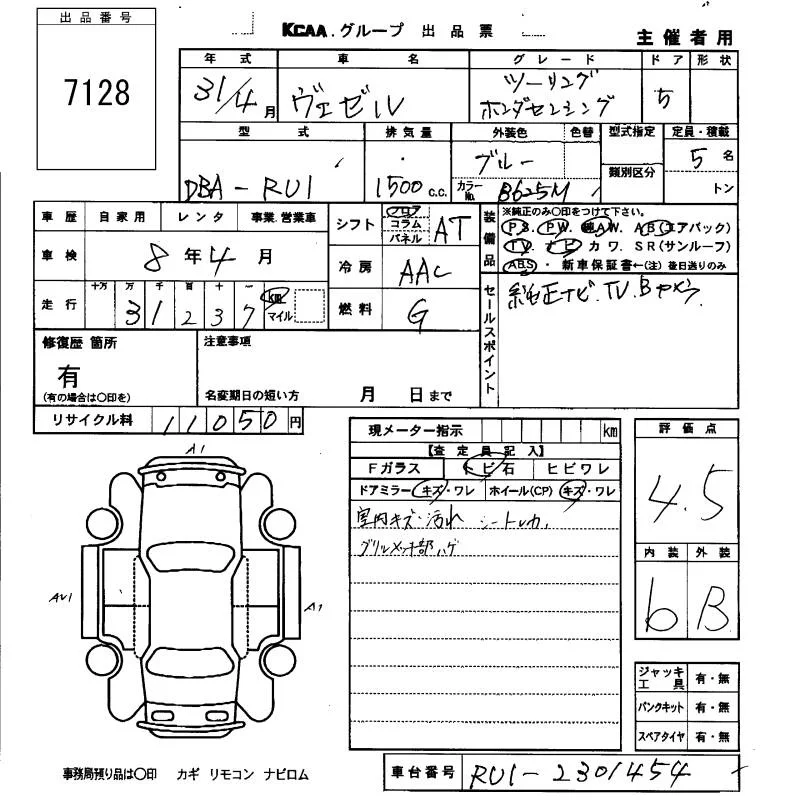 出品番号
7128
KCAA.グループ 出品票
主催者用
年式 車名 グレード ドア 形状
31/4月 ヴェゼル ツーリング ホンダセンシング 5
型式 排気量 外装色 色替 型式指定 定員・積載
DBA-RU1 1500c.c. ブルー 類別区分 5名
カラーNo. B625M トン
車歴 自家用 レンタ 事業.営業車
車検 8年4月
走行 十万 万 千 百 十 一
31237 km マイル
シフト フロア コラム パネル AT
冷房 AAC
燃料 G
装備品
※純正のみ〇印をつけて下さい。
P S. P W. 純A W. A B(エアバッグ)
T V. ナ ビ カ ワ. S R(サンルーフ)
A B S・ 新車保証書←(注) 後日送りのみ
セールスポイント
純正ナビ.TV.Bカメラ
修復歴 箇所
有
(有の場合は〇印を)
注意事項
名変期日の短い方 月 日まで
リサイクル料 11050円
現メーター指示 km
【査定員記入】
Fガラス トビ石 ヒビワレ
ドアミラー キズ・ワレ ホイール(CP) キズ・ワレ
室内キズ・汚れ シート
グリルメッキ部ハゲ
評価点
4.5
内装 外装
6 B
A1
AU1
A1
ジャッキ工具 有・無
パンクキット 有・無
スペアタイヤ 有・無
事務局預り品は〇印 カギ リモコン ナビロム
車台番号 RU1-2301454